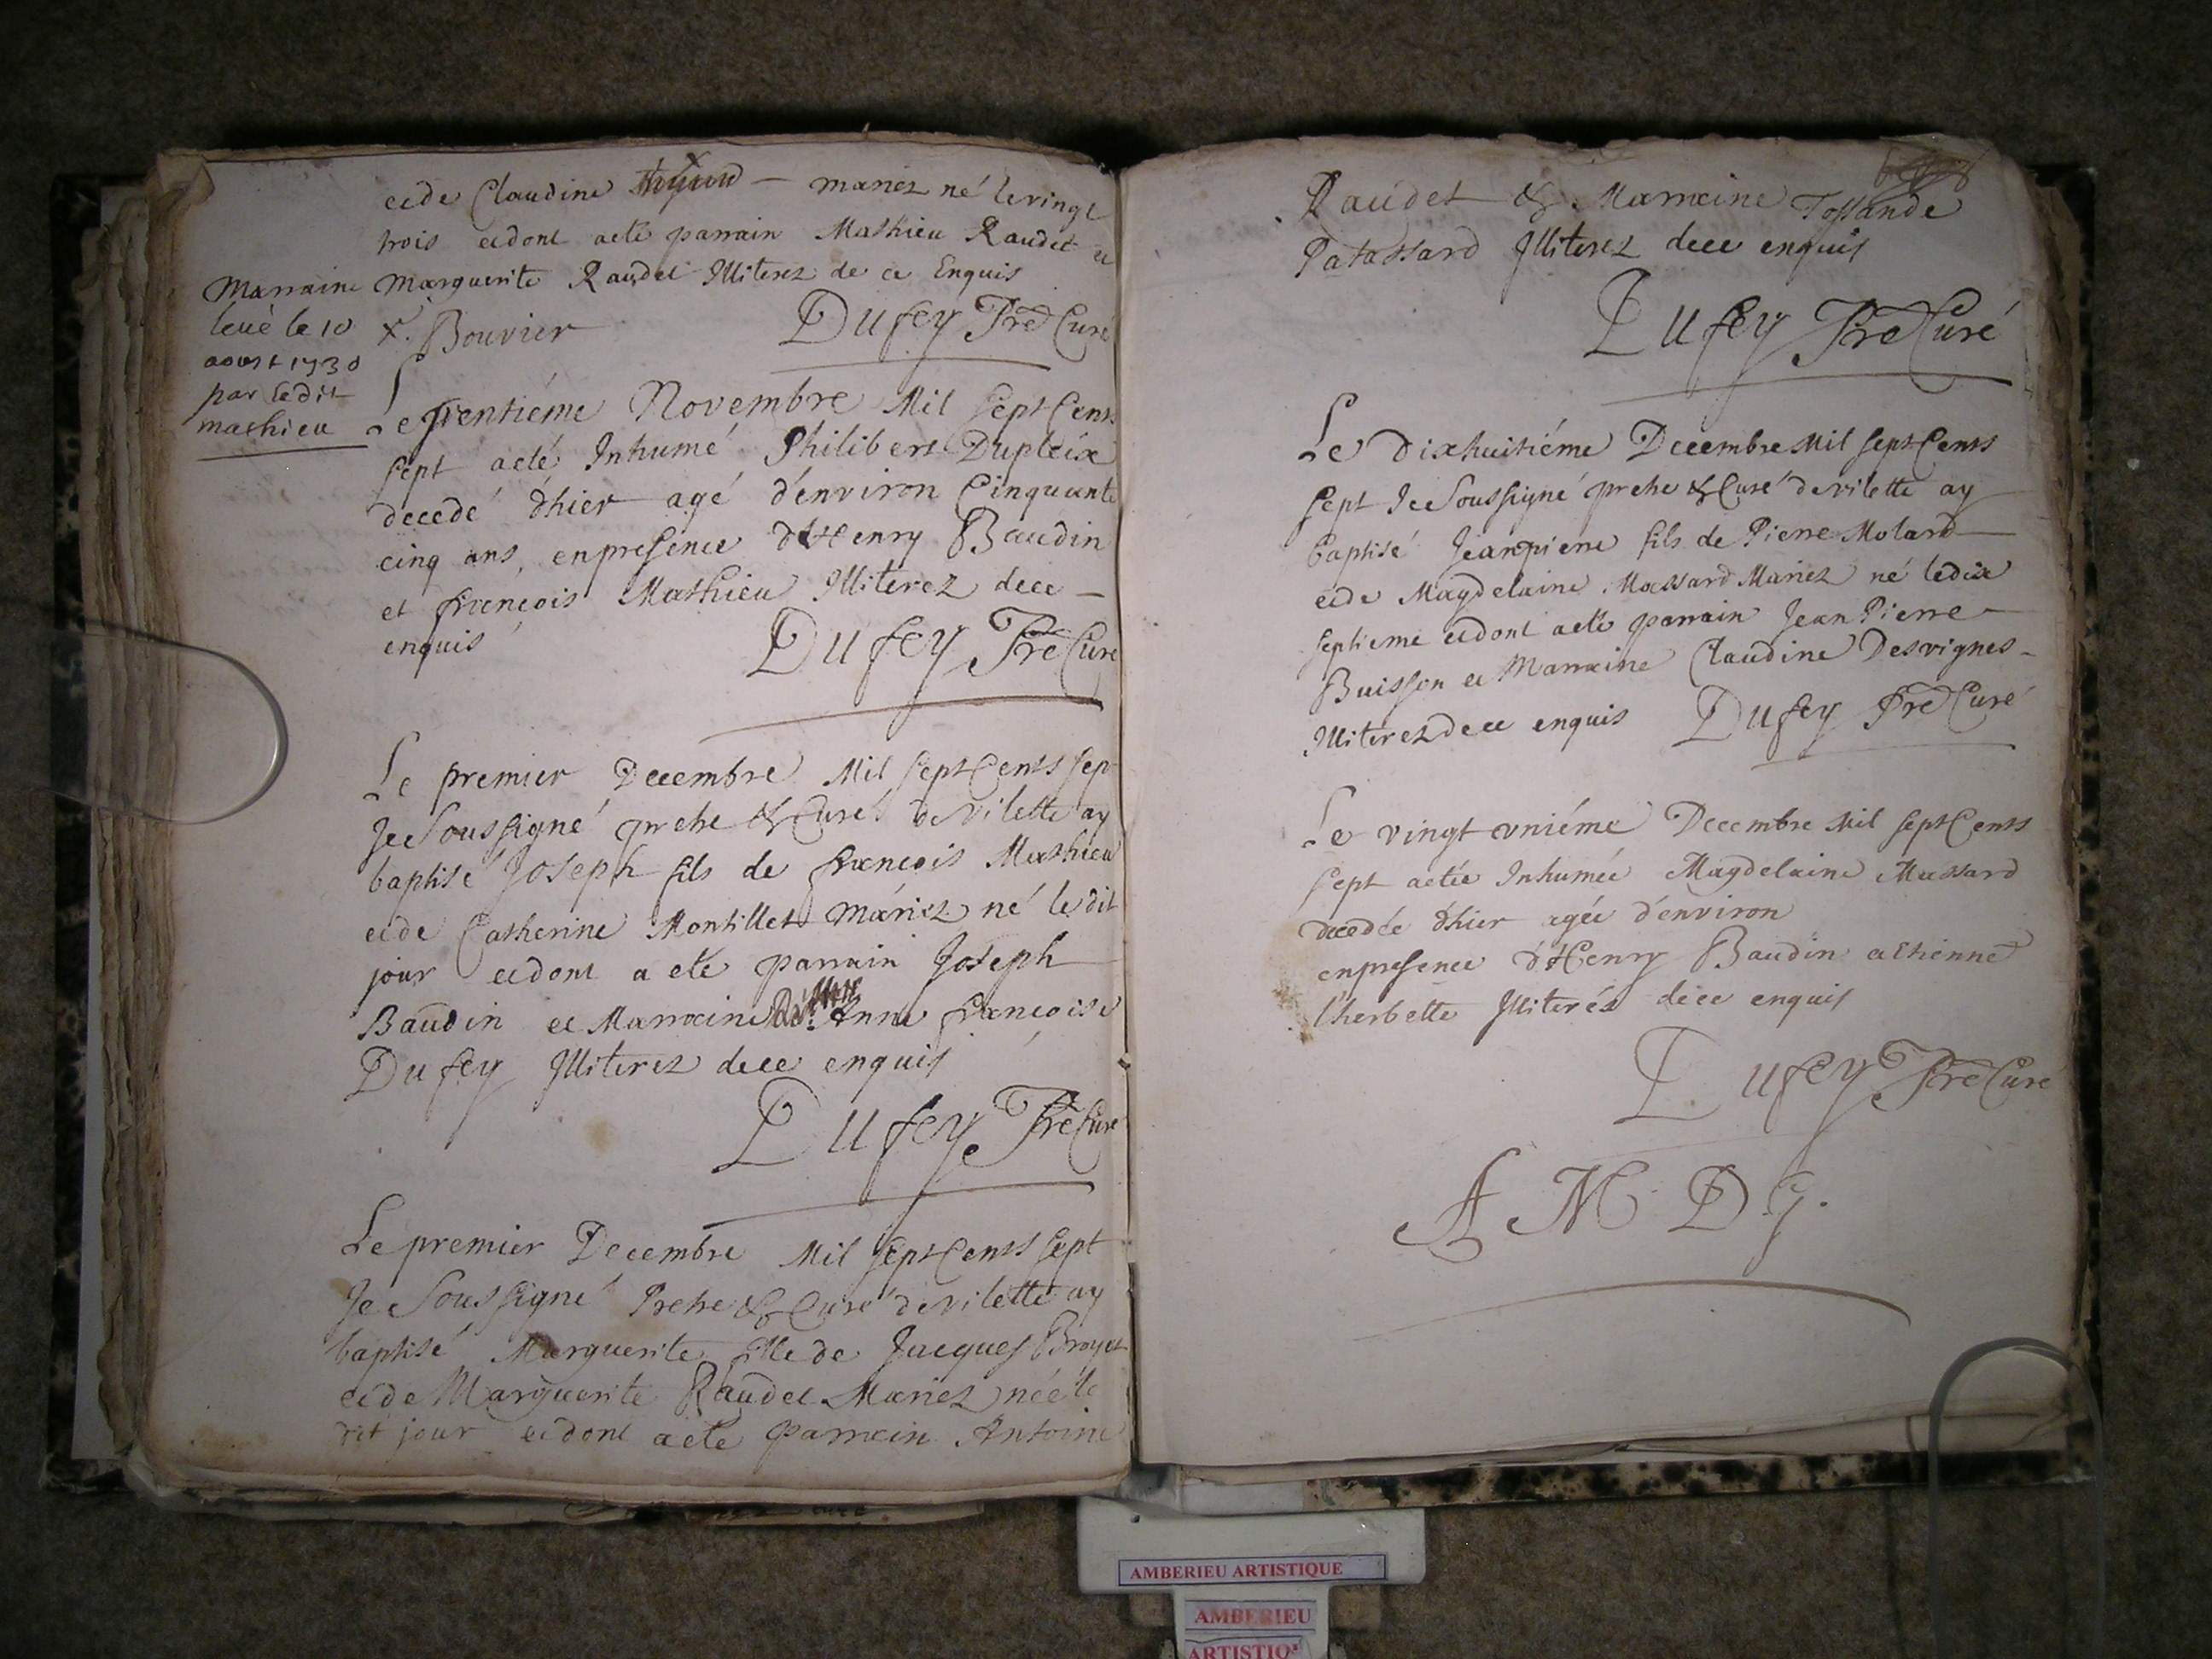 et de Claudine — mariez né le vingt
trois et dont a eté parrain Mathieu Raudet et
Marraine Marguerite Raudet Illiterez de ce Enquis
x. Bouvier Dufey Pre Curé
levé le 10
aoust 1730
par ledit
mathieu
Le trentiéme Novembre Mil Sept Cents
sept a eté Inhumé Philibert Dupleix
decedé d'hier agé d'environ Cinquante
cinq ans, en presence d'Henry Baudin
et françois Mathieu Illiterez de ce —
enquis Dufey Pre Curé
Le premier Decembre Mil Sept Cents sept
Je Soussigné prestre & Curé de vilette ay
baptisé Joseph fils de françois Mathieu
et de Catherine Montillet mariez né le dit
jour et dont a eté parrain Joseph
Baudin et Marraine Anne françoise
Dufey Illiterez de ce enquis
Dufey Pre Curé
Le premier Decembre Mil Sept Cents sept
Je Soussigné Prestre & Curé de vilette ay
baptisé Marguerite fille de Jacques Broyet
et de Marguerite Raudet Mariez née le
dit jour et dont a eté parrain Antoine
Raudet & Marraine Tossande
Patassard Illiterez de ce enquis
Dufey Pre Curé
Le dixhuitiéme Decembre Mil Sept Cents
sept Je Soussigné prestre & Curé de vilette ay
baptisé Jeanpierre fils de Pierre Molard
et de Magdelaine Massard Mariez né le dix
septieme et dont a eté parrain Jean Pierre
Buisson et Marraine Claudine Desvignes
Illiterez de ce enquis Dufey Pre Curé
Le vingt vniéme Decembre Mil Sept Cents
sept a etée Inhumée Magdelaine Massard
decedée d'hier agée d'environ
en presence d'Henry Baudin et Etienne
l'herbette Illiterés de ce enquis
Dufey Pre Curé
A M D G.
AMBERIEU ARTISTIQUE
AMBERIEU
ARTISTIQ